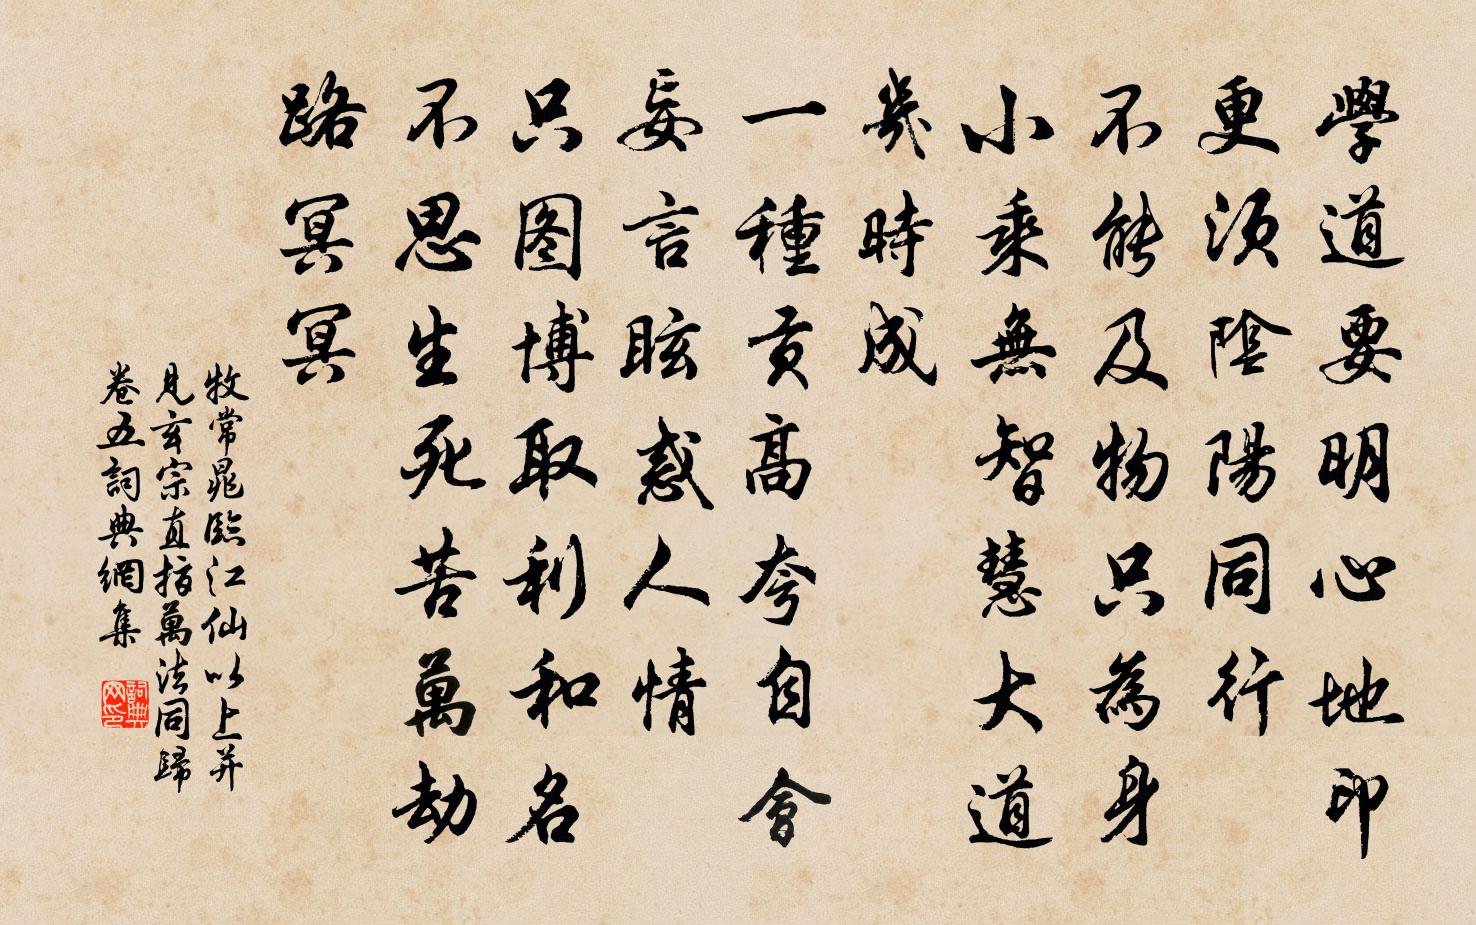 學道要明心地印
更須陰陽同行
不能及物只為身
小乘無智慧大道
幾時成
一種貢高夸自會
妄言眩惑人情
只图博取利和名
不思生死苦萬劫
路冥冥
牧常晁臨江仙以上并
見玄宗直指萬法同歸
卷五詞典網集
詞典
网印